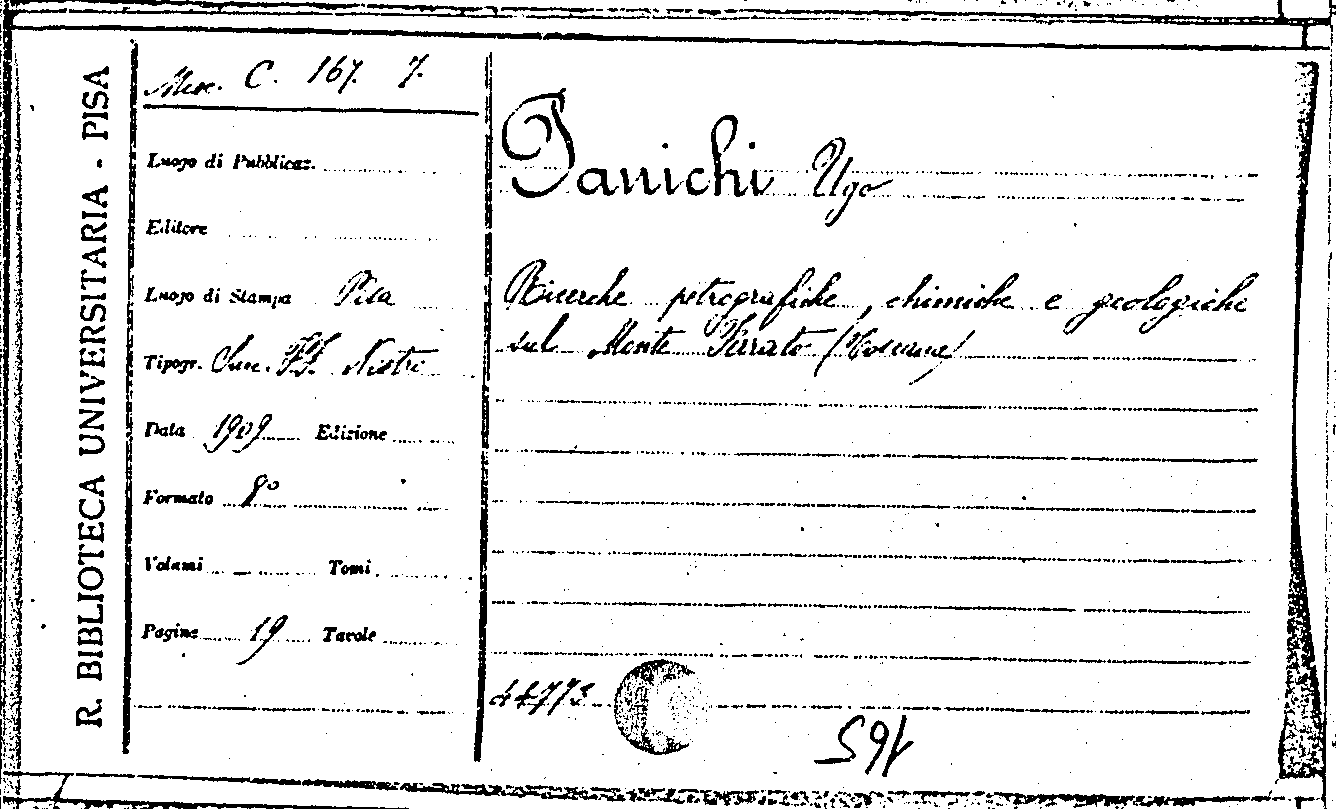 R. BIBLIOTECA UNIVERSITARIA - PISA
Misc. C. 167. 7.
Luogo di Pubblicaz.
Editore
Luogo di Stampa Pisa
Tipogr. Succ. FF. Nistri
Data 1909 Edizione
Formato 8°
Volumi Tomi
Pagine 19 Tavole
Panichi Ugo
Ricerche petrografiche, chimiche e geologiche
sul Monte Ferrato (Toscana)
44773
165